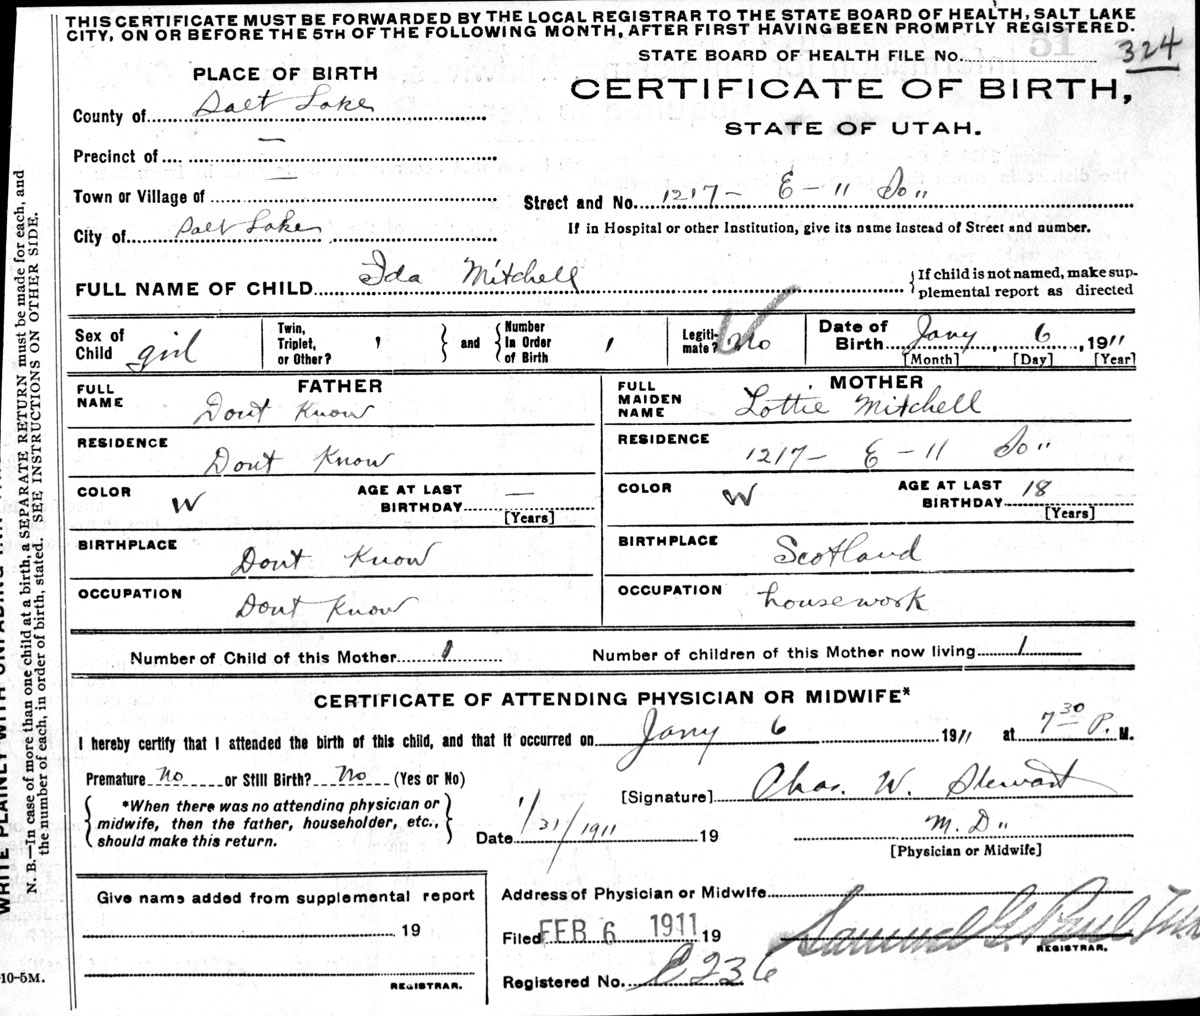 THIS CERTIFICATE MUST BE FORWARDED BY THE LOCAL REGISTRAR TO THE STATE BOARD OF HEALTH, SALT LAKE
CITY, ON OR BEFORE THE 5TH OF THE FOLLOWING MONTH, AFTER FIRST HAVING BEEN PROMPTLY REGISTERED.
STATE BOARD OF HEALTH FILE No. 324
PLACE OF BIRTH
CERTIFICATE OF BIRTH,
STATE OF UTAH.
County of Salt Lake
Precinct of —
Town or Village of —
Street and No. 1217 – E – 11 So "
City of Salt Lake
If in Hospital or other Institution, give its name instead of Street and number.
FULL NAME OF CHILD Ida Mitchell
If child is not named, make sup-
plemental report as directed
Sex of Child girl
Twin, Triplet, or Other? '
and
Number In Order of Birth '
Legiti-mate? No
Date of Birth Jany 6, 1911
[Month] [Day] [Year]
FATHER
FULL NAME Dont Know
RESIDENCE Dont Know
COLOR W
AGE AT LAST BIRTHDAY —
[Years]
BIRTHPLACE Dont Know
OCCUPATION Dont Know
MOTHER
FULL MAIDEN NAME Lottie Mitchell
RESIDENCE 1217 – E – 11 So "
COLOR W
AGE AT LAST BIRTHDAY 18
[Years]
BIRTHPLACE Scotland
OCCUPATION housework
Number of Child of this Mother 1
Number of children of this Mother now living 1
CERTIFICATE OF ATTENDING PHYSICIAN OR MIDWIFE*
I hereby certify that I attended the birth of this child, and that it occurred on Jany 6 1911 at 7 30 P. M.
Premature No or Still Birth? No (Yes or No)
[Signature] Chas. W. Stewart
*When there was no attending physician or
midwife, then the father, householder, etc.,
should make this return.
Date 1/31/1911 19
M. D "
[Physician or Midwife]
Give name added from supplemental report
19
REGISTRAR.
Address of Physician or Midwife
Filed FEB 6 1911 19
REGISTRAR.
Registered No. 236
10-5M.
N. B.—In case of more than one child at a birth, a SEPARATE RETURN must be made for each, and
the number of each, in order of birth, stated. SEE INSTRUCTIONS ON OTHER SIDE.
WRITE PLAINLY WITH UNFADING